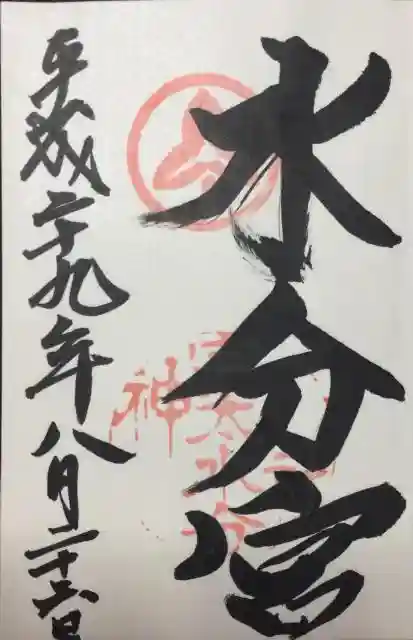 水分宮
平成二十九年八月二十六日
神
水分